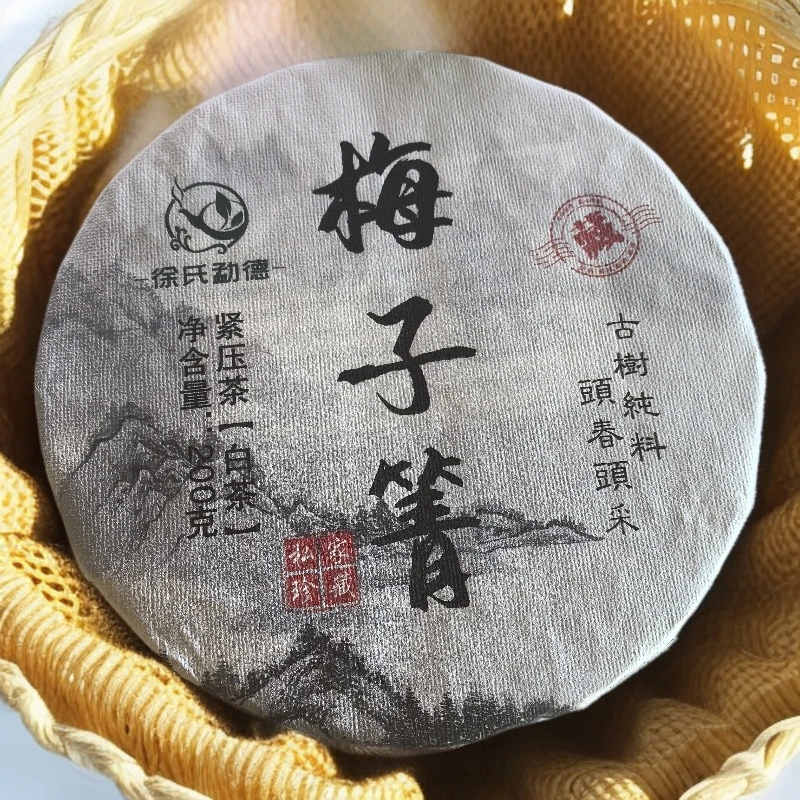 梅子箐
徐氏勐德
紧压茶【白茶】
净含量：200克
藏
古樹純料
頭春頭采